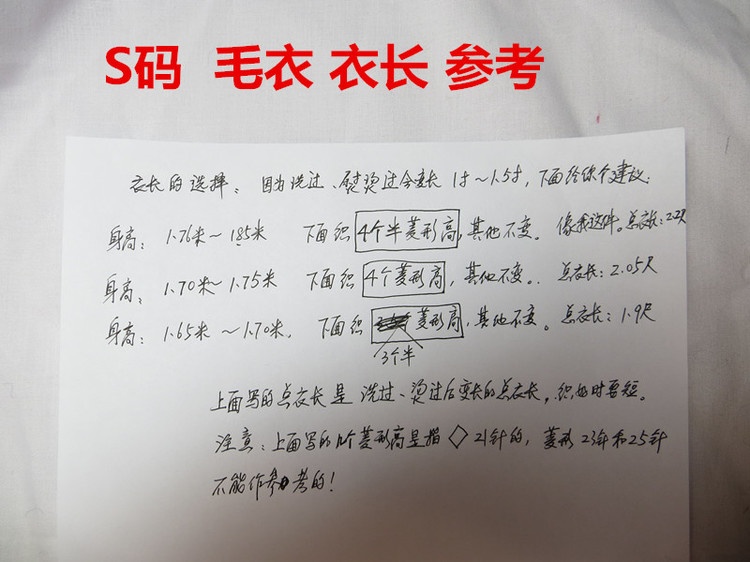 S码 毛衣 衣长 参考
衣长的选择。因为洗过、熨烫过会变长 1寸~1.5寸,下面给你个建议:
身高: 1.76米~1.85米 下面织 4个半菱形高,其他不变。像我这件。总衣长:2.2尺
身高: 1.70米~1.75米 下面织 4个菱形高,其他不变。总衣长:2.05尺
身高: 1.65米~1.70米. 下面织 菱形高,其他不变。总衣长:1.9尺
3个半
上面写的总衣长是洗过、烫过后变长的总衣长,织的时要短。
注意:上面写的几个菱形高是指◇21针的,菱形23针和25针
不能作参考的!